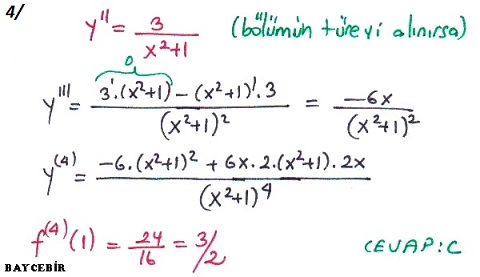 4/
y'' = 3/(x²+1) (bölümün türevi alınırsa)
0
y''' = (3'.(x²+1) - (x²+1)'.3)/(x²+1)² = -6x/(x²+1)²
y⁽⁴⁾ = (-6.(x²+1)² + 6x.2.(x²+1).2x)/(x²+1)⁴
f⁽⁴⁾(1) = 24/16 = 3/2 CEVAP:C
BAYCEBİR